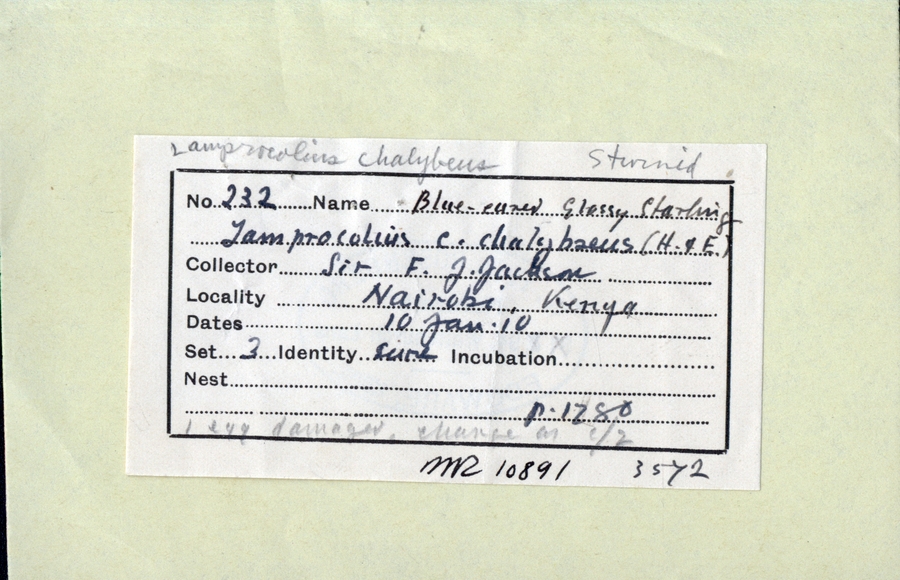 Lamprocolius chalybeus Sturnid
No. 232 Name Blue-eared Glossy Starling
Lamprocolius c. chalybaeus (H. & E.)
Collector Sir F. J. Jackson
Locality Nairobi, Kenya
Dates 10 Jan. 10
Set 3 Identity sure Incubation
Nest
p. 1280
1 egg damaged, change as c/2
10891 3572